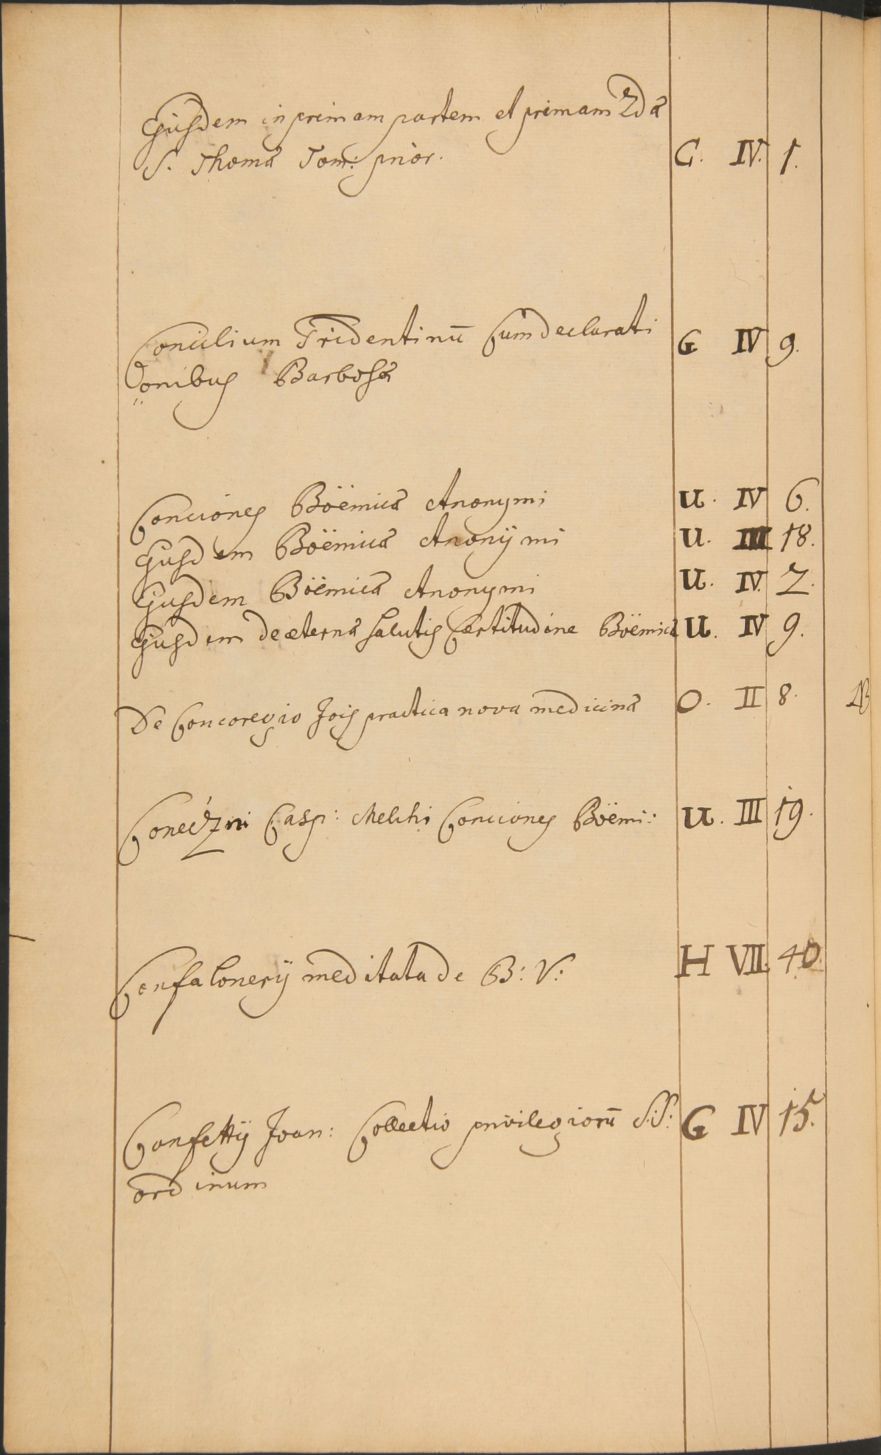 Ejusdem in primam partem et primam 2dæ
S. Thomæ Tom: prior. C. IV. 1.
Concilium Tridentinū Cum declarati
onibus Barbosæ G IV 9.
Conciones Böëmicæ Anonymi U. IV 6.
Ejusdem Böëmicæ Anonÿmi U. III 18.
Ejusdem Böëmicæ Anonymi U. IV. 7.
Ejusdem de æternæ salutis Certitudine Böëmicæ U. IV 9.
De Concoregio Jois practica nova medicinæ O. II 8.
Casp: Melchi Conciones Böëmi: U. III 19.
Confalonerÿ meditata de B: V: H VII. 40.
Confettÿ Joan: Collectio privilegiorū S:S: G IV 15.
ordinum